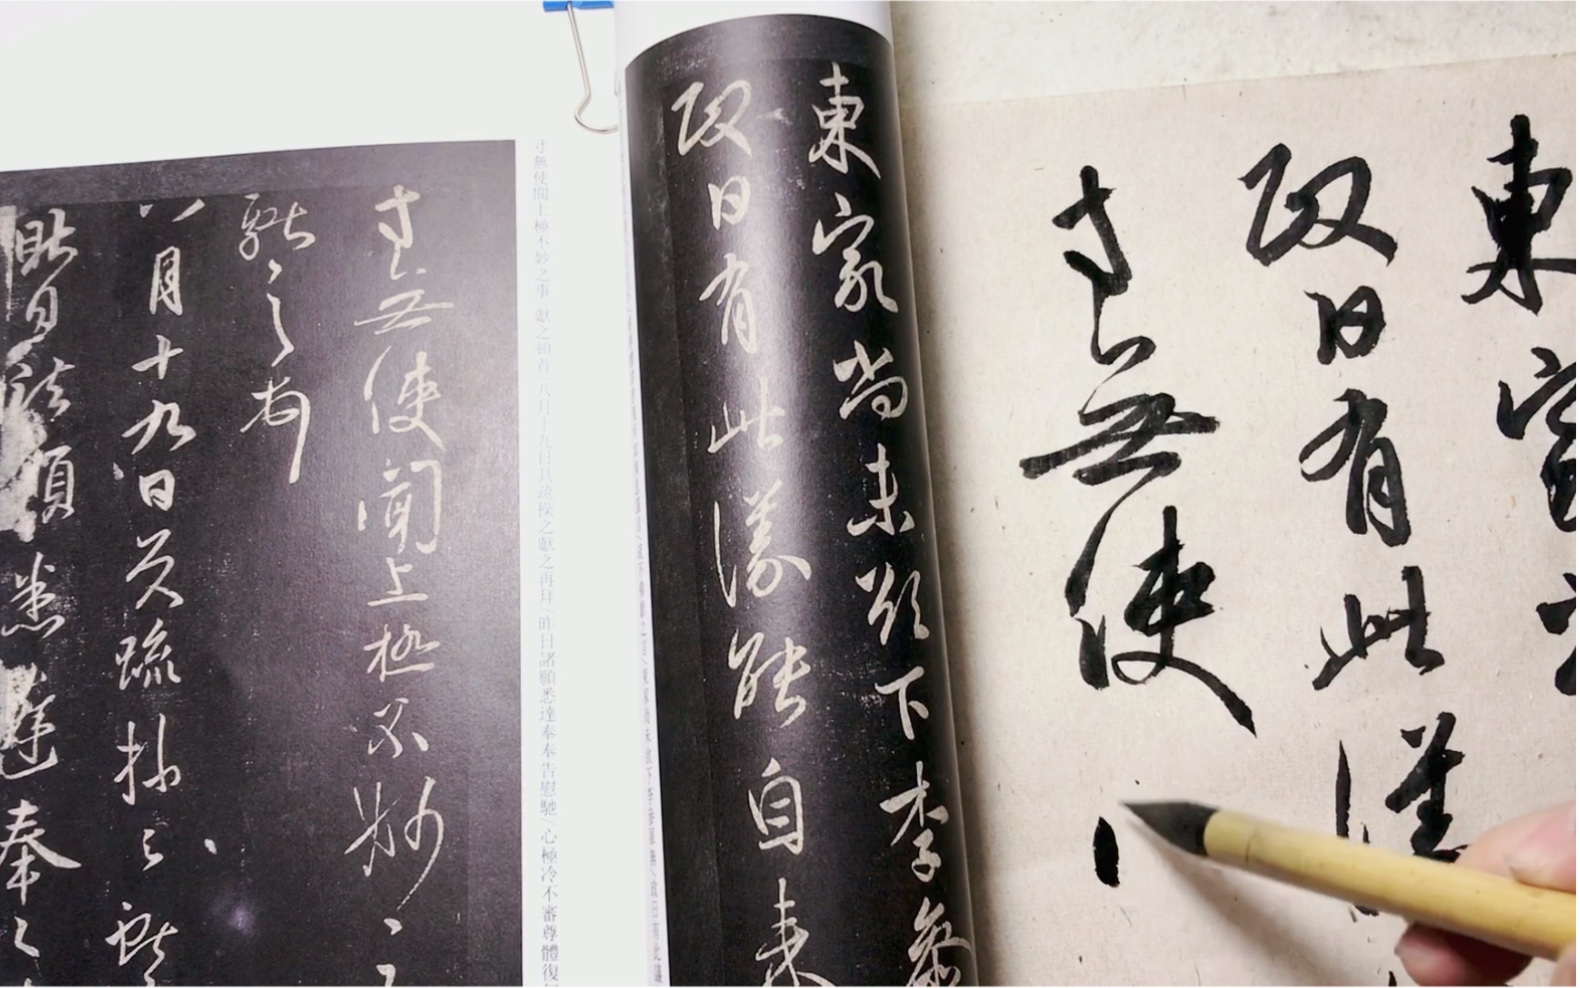 東家
故日有此議
寸無使
東家尚未欲下李參
故日有此議能自來
寸無使聞上極不妙之事/獻之頓首/八月十九日具疏操之獻之再拜/昨日諸願悉達奉奉告慰馳/心極冷不審尊體復
寸無使聞上極不妙之
獻之頓首
八月十九日具疏操之獻
昨日諸願悉達奉